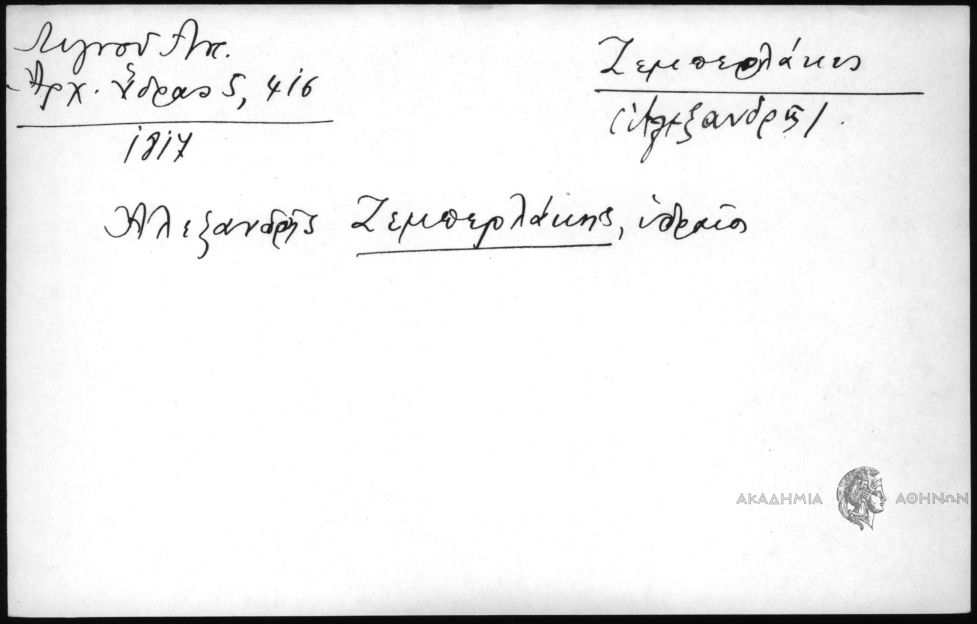 Λιγνού Αντ.
Ἀρχ. Ὕδρας 5, 416
1817
Ζεμπερλάκης
(Ἀλεξανδρῆς)
Ἀλεξανδρῆς Ζεμπερλάκης, ὑδραῖος
ΑΚΑΔΗΜΙΑ ΑΘΗΝΩΝ